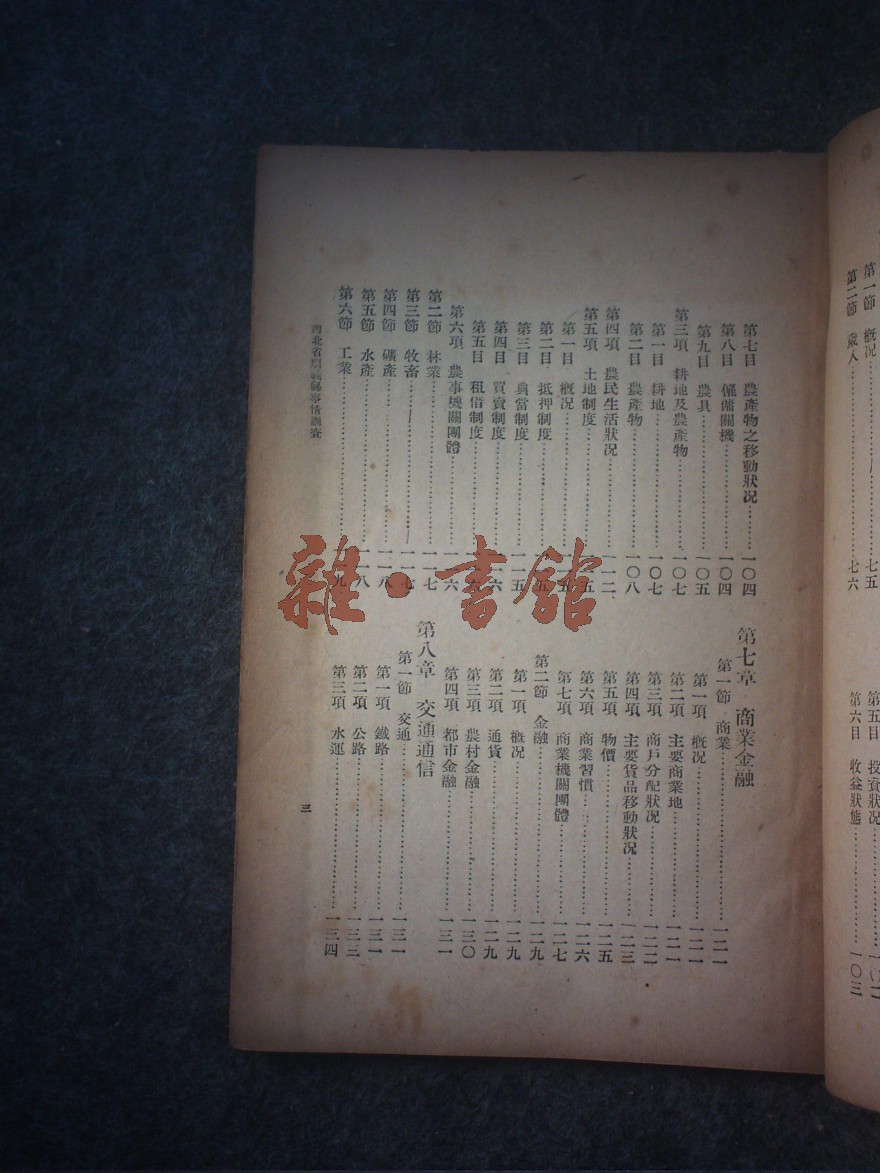 第一節 概況……七五
第二節 歲入……七六
第五目 投資狀況……一〇二
第六目 收益狀態……一〇三
第七目 農產物之移動狀況……一〇四
第八目 僱傭關機……一〇四
第九目 農具……一〇五
第三項 耕地及農產物……一〇七
第一目 耕地……一〇七
第二目 農產物……一〇八
第四項 農民生活狀況……一一二
第五項 土地制度……
第一目 概況……
第二目 抵押制度……
第三目 典當制度……一一五
第四目 買賣制度……
第五目 租借制度……
第六項 農事機關團體……一一六
第二節 林業……一一七
第三節 牧畜……一一七
第四節 礦產……一一八
第五節 水產……一一八
第六節 工業……
第七章 商業金融
第一節 商業……一二一
第一項 概況……一二一
第二項 主要商業地……一二一
第三項 商戶分配狀況……一二二
第四項 主要貨品移動狀況……一二三
第五項 物價……一二五
第六項 商業習慣……一二六
第七項 商業機關團體……一二七
第二節 金融……一二九
第一項 概況……一二九
第二項 通貨……一二九
第三項 農村金融……一三〇
第四項 都市金融……一三一
第八章 交通通信
第一節 交通……一三一
第一項 鐵路……一三一
第二項 公路……一三三
第三項 水運……一三四
河北省
三
雜·書館